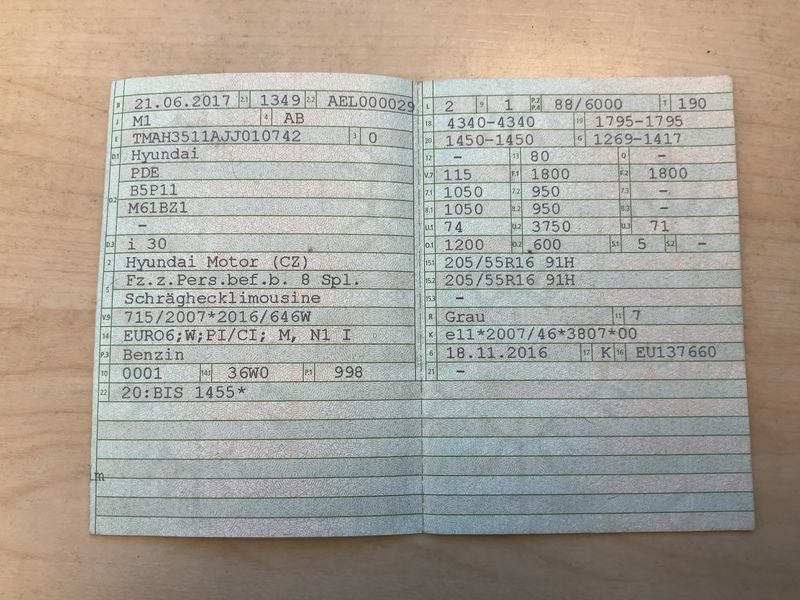 B 21.06.2017 2.1 1349 2.2 AEL000029
J M1 4 AB
E TMAH3511AJJ010742 3 0
D.1 Hyundai
PDE
D.2 B5P11
M61BZ1
–
D.3 i 30
2 Hyundai Motor (CZ)
5 Fz.z.Pers.bef.b. 8 Spl.
Schräghecklimousine
V.9 715/2007*2016/646W
14 EURO6;W;PI/CI; M, N1 I
P.3 Benzin
10 0001 14.1 36W0 P.1 998
22 20:BIS 1455*
lm
L 2 9 1 P.2 P.4 88/6000 T 190
18 4340–4340 19 1795–1795
20 1450–1450 G 1269–1417
12 – 13 80 Q –
V.7 115 F.1 1800 F.2 1800
7.1 1050 7.2 950 7.3 –
8.1 1050 8.2 950 8.3 –
U.1 74 U.2 3750 U.3 71
O.1 1200 O.2 600 S.1 5 S.2 –
15.1 205/55R16 91H
15.2 205/55R16 91H
15.3 –
R Grau 11 7
K e11*2007/46*3807*00
6 18.11.2016 17 K 16 EU137660
21 –